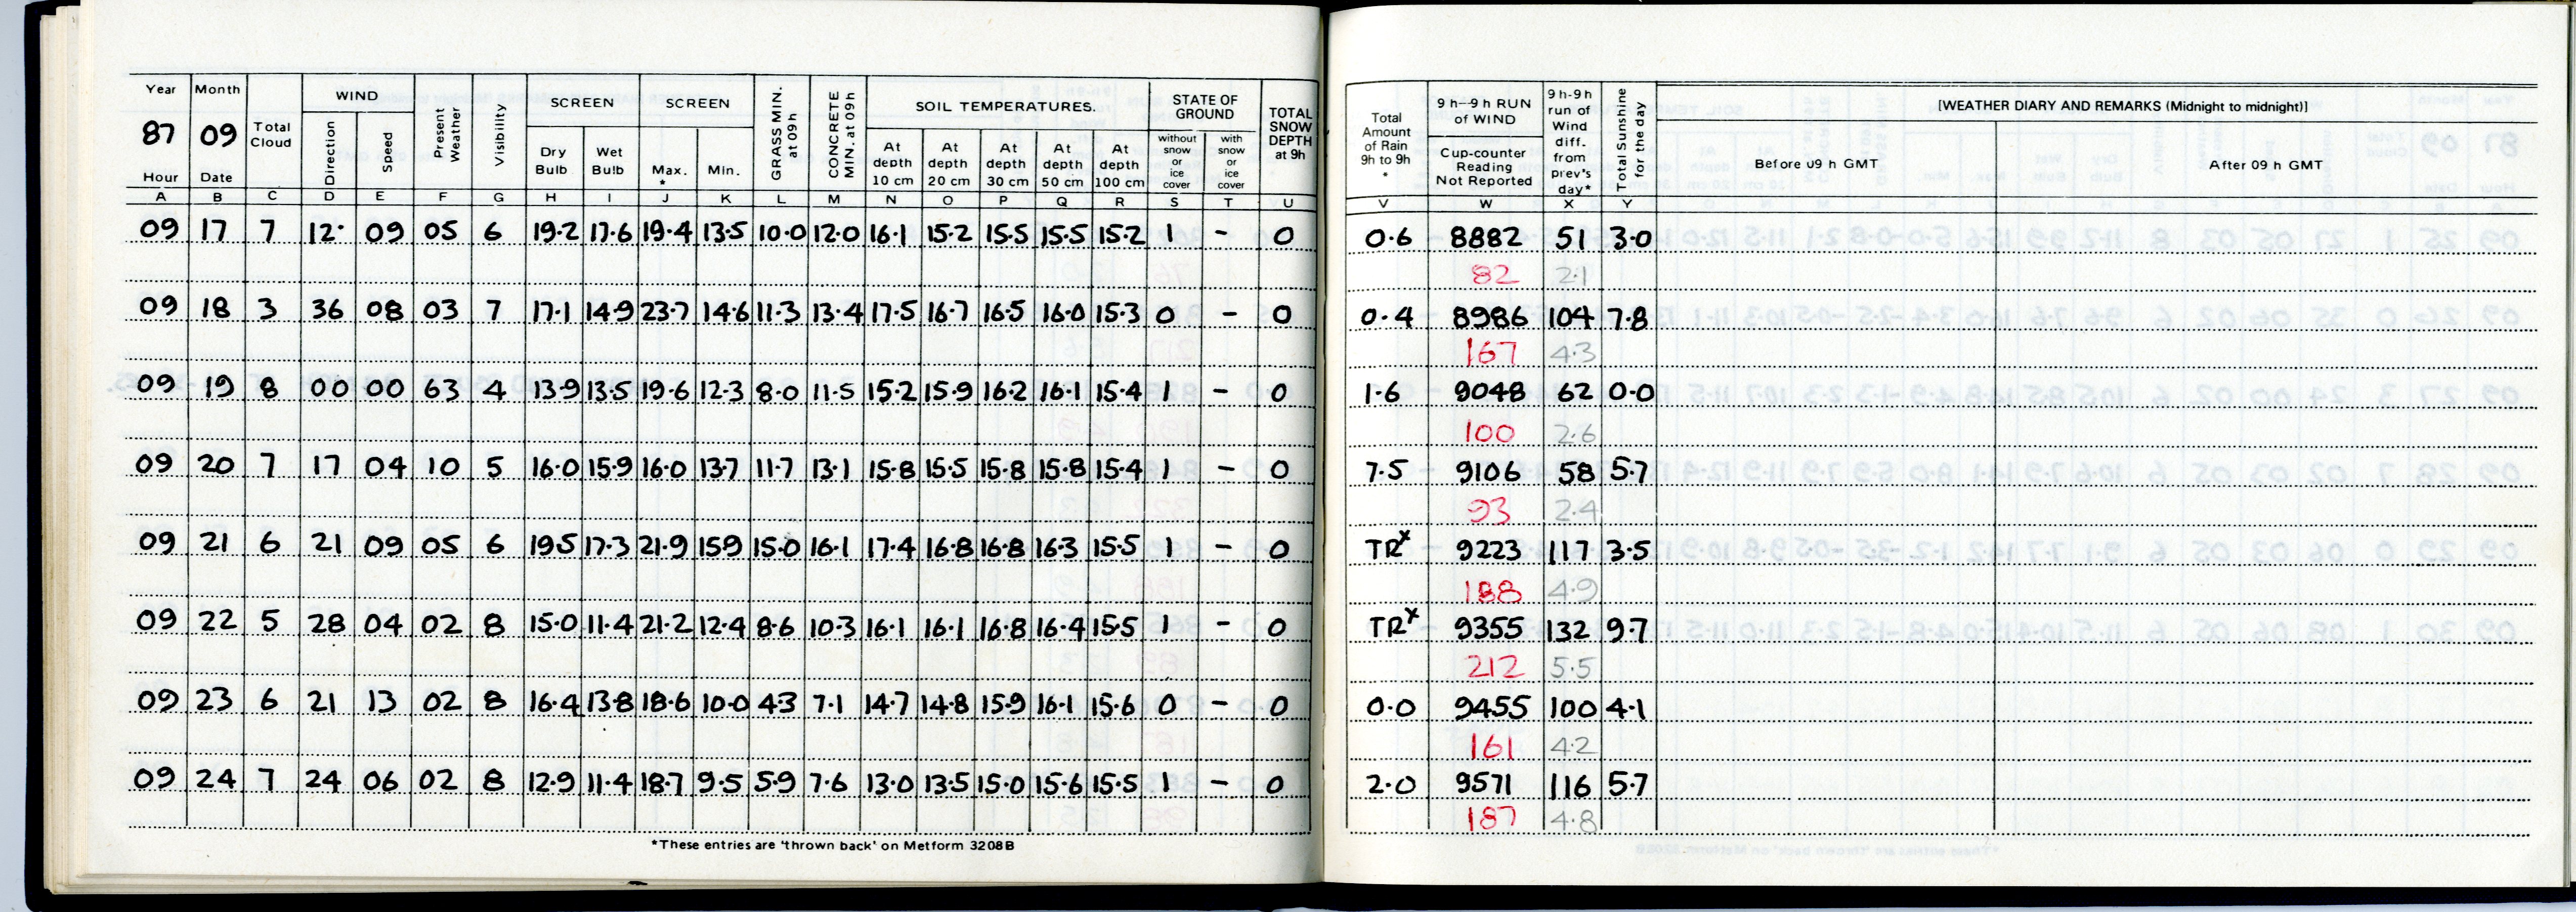 Year Month Total Cloud WIND Present Weather Visibility SCREEN SCREEN GRASS MIN. at 09h CONCRETE MIN. at 09h SOIL TEMPERATURES. STATE OF GROUND TOTAL SNOW DEPTH at 9h Total Amount of Rain 9h to 9h * 9 h–9 h RUN of WIND 9 h-9h run of Wind diff. from prev's day* Total Sunshine for the day [WEATHER DIARY AND REMARKS (Midnight to midnight)]
87 09 Direction Speed Dry Bulb Wet Bulb Max. * Min. At depth 10 cm At depth 20 cm At depth 30 cm At depth 50 cm At depth 100 cm without snow or ice cover with snow or ice cover Cup-counter Reading Not Reported Before 09 h GMT After 09 h GMT
Hour Date
A B C D E F G H I J K L M N O P Q R S T U V W X Y
09 17 7 12· 09 05 6 19·2 17·6 19·4 13·5 10·0 12·0 16·1 15·2 15·5 15·5 15·2 1 – 0 0·6 8882 51 3·0
82 2·1
09 18 3 36 08 03 7 17·1 14·9 23·7 14·6 11·3 13·4 17·5 16·7 16·5 16·0 15·3 0 – 0 0·4 8986 104 7·8
167 4·3
09 19 8 00 00 63 4 13·9 13·5 19·6 12·3 8·0 11·5 15·2 15·9 16·2 16·1 15·4 1 – 0 1·6 9048 62 0·0
100 2·6
09 20 7 17 04 10 5 16·0 15·9 16·0 13·7 11·7 13·1 15·8 15·5 15·8 15·8 15·4 1 – 0 7·5 9106 58 5·7
93 2·4
09 21 6 21 09 05 6 19·5 17·3 21·9 15·9 15·0 16·1 17·4 16·8 16·8 16·3 15·5 1 – 0 TRx 9223 117 3·5
188 4·9
09 22 5 28 04 02 8 15·0 11·4 21·2 12·4 8·6 10·3 16·1 16·1 16·8 16·4 15·5 1 – 0 TRx 9355 132 9·7
212 5·5
09 23 6 21 13 02 8 16·4 13·8 18·6 10·0 4·3 7·1 14·7 14·8 15·9 16·1 15·6 0 – 0 0·0 9455 100 4·1
161 4·2
09 24 7 24 06 02 8 12·9 11·4 18·7 9·5 5·9 7·6 13·0 13·5 15·0 15·6 15·5 1 – 0 2·0 9571 116 5·7
187 4·8
*These entries are 'thrown back' on Metform 3208B